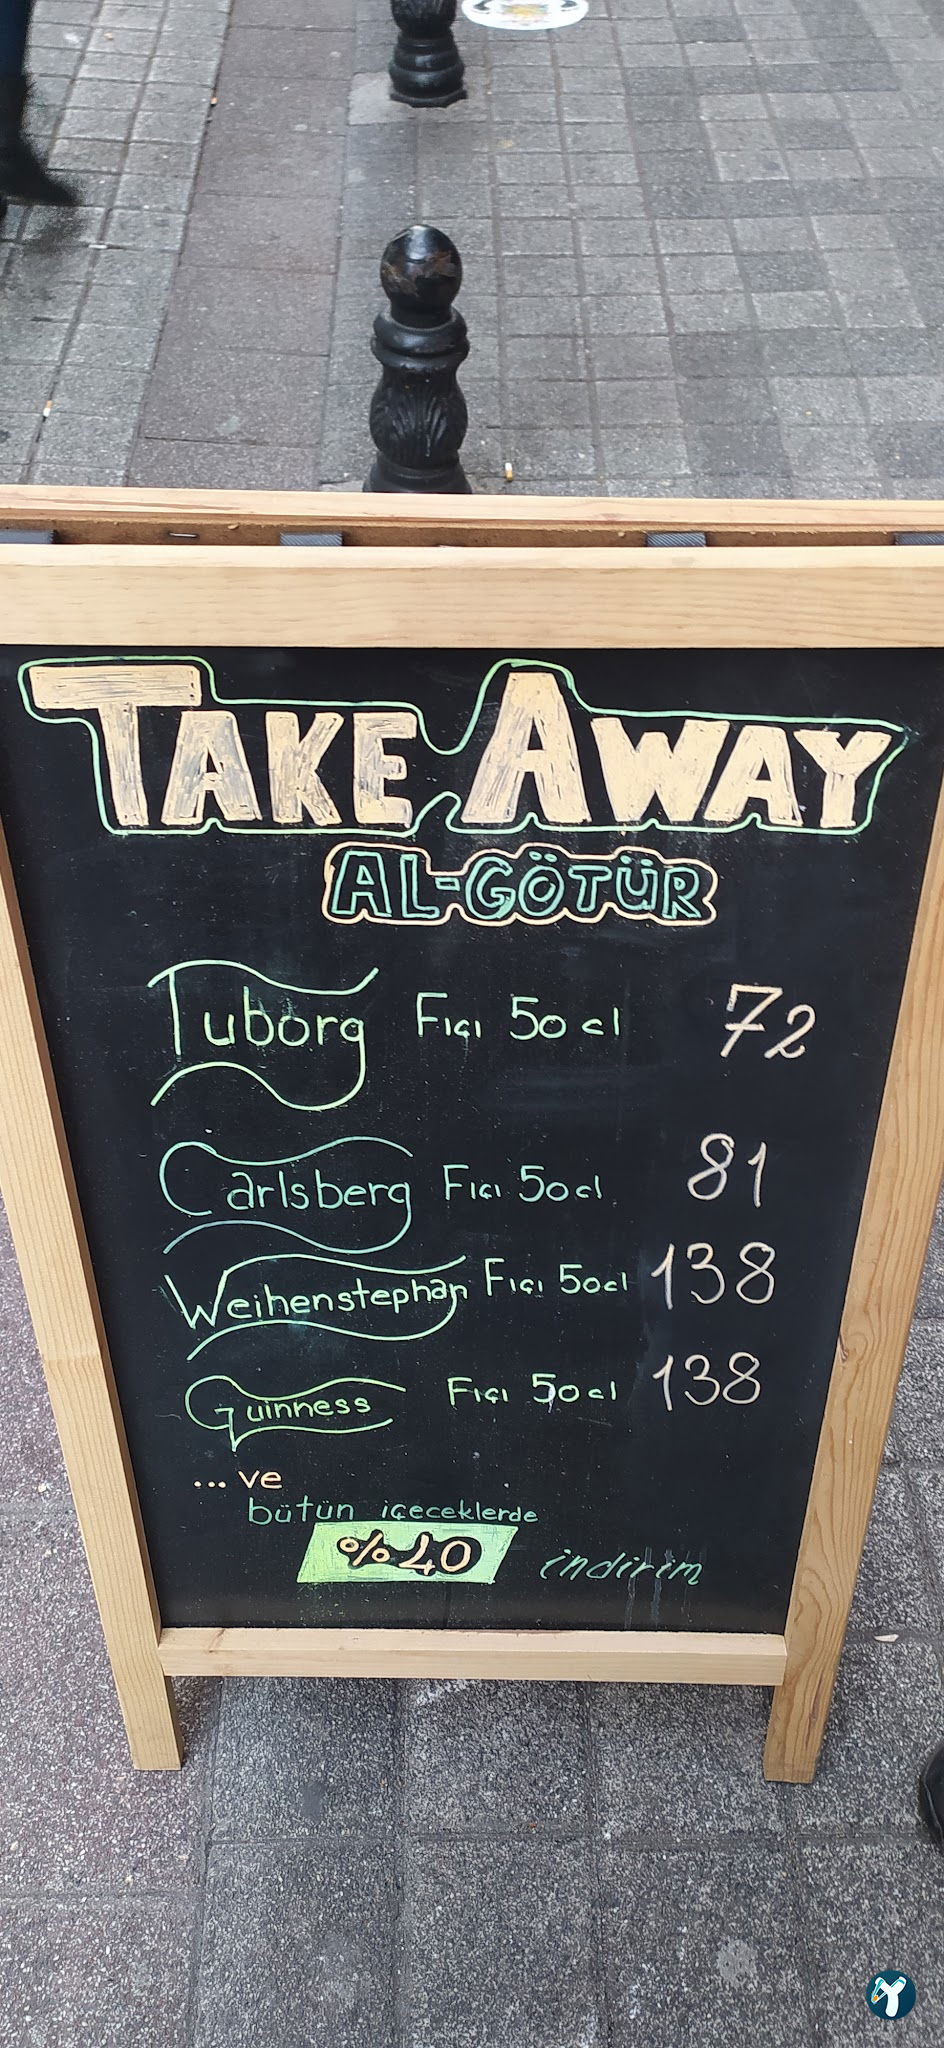 TAKE AWAY
AL-GÖTÜR
Tuborg Fıçı 50 cl 72
Carlsberg Fıçı 50cl 81
Weihenstephan Fıçı 50cl 138
Guinness Fıçı 50cl 138
... ve
bütün içeceklerde
%40 indirim